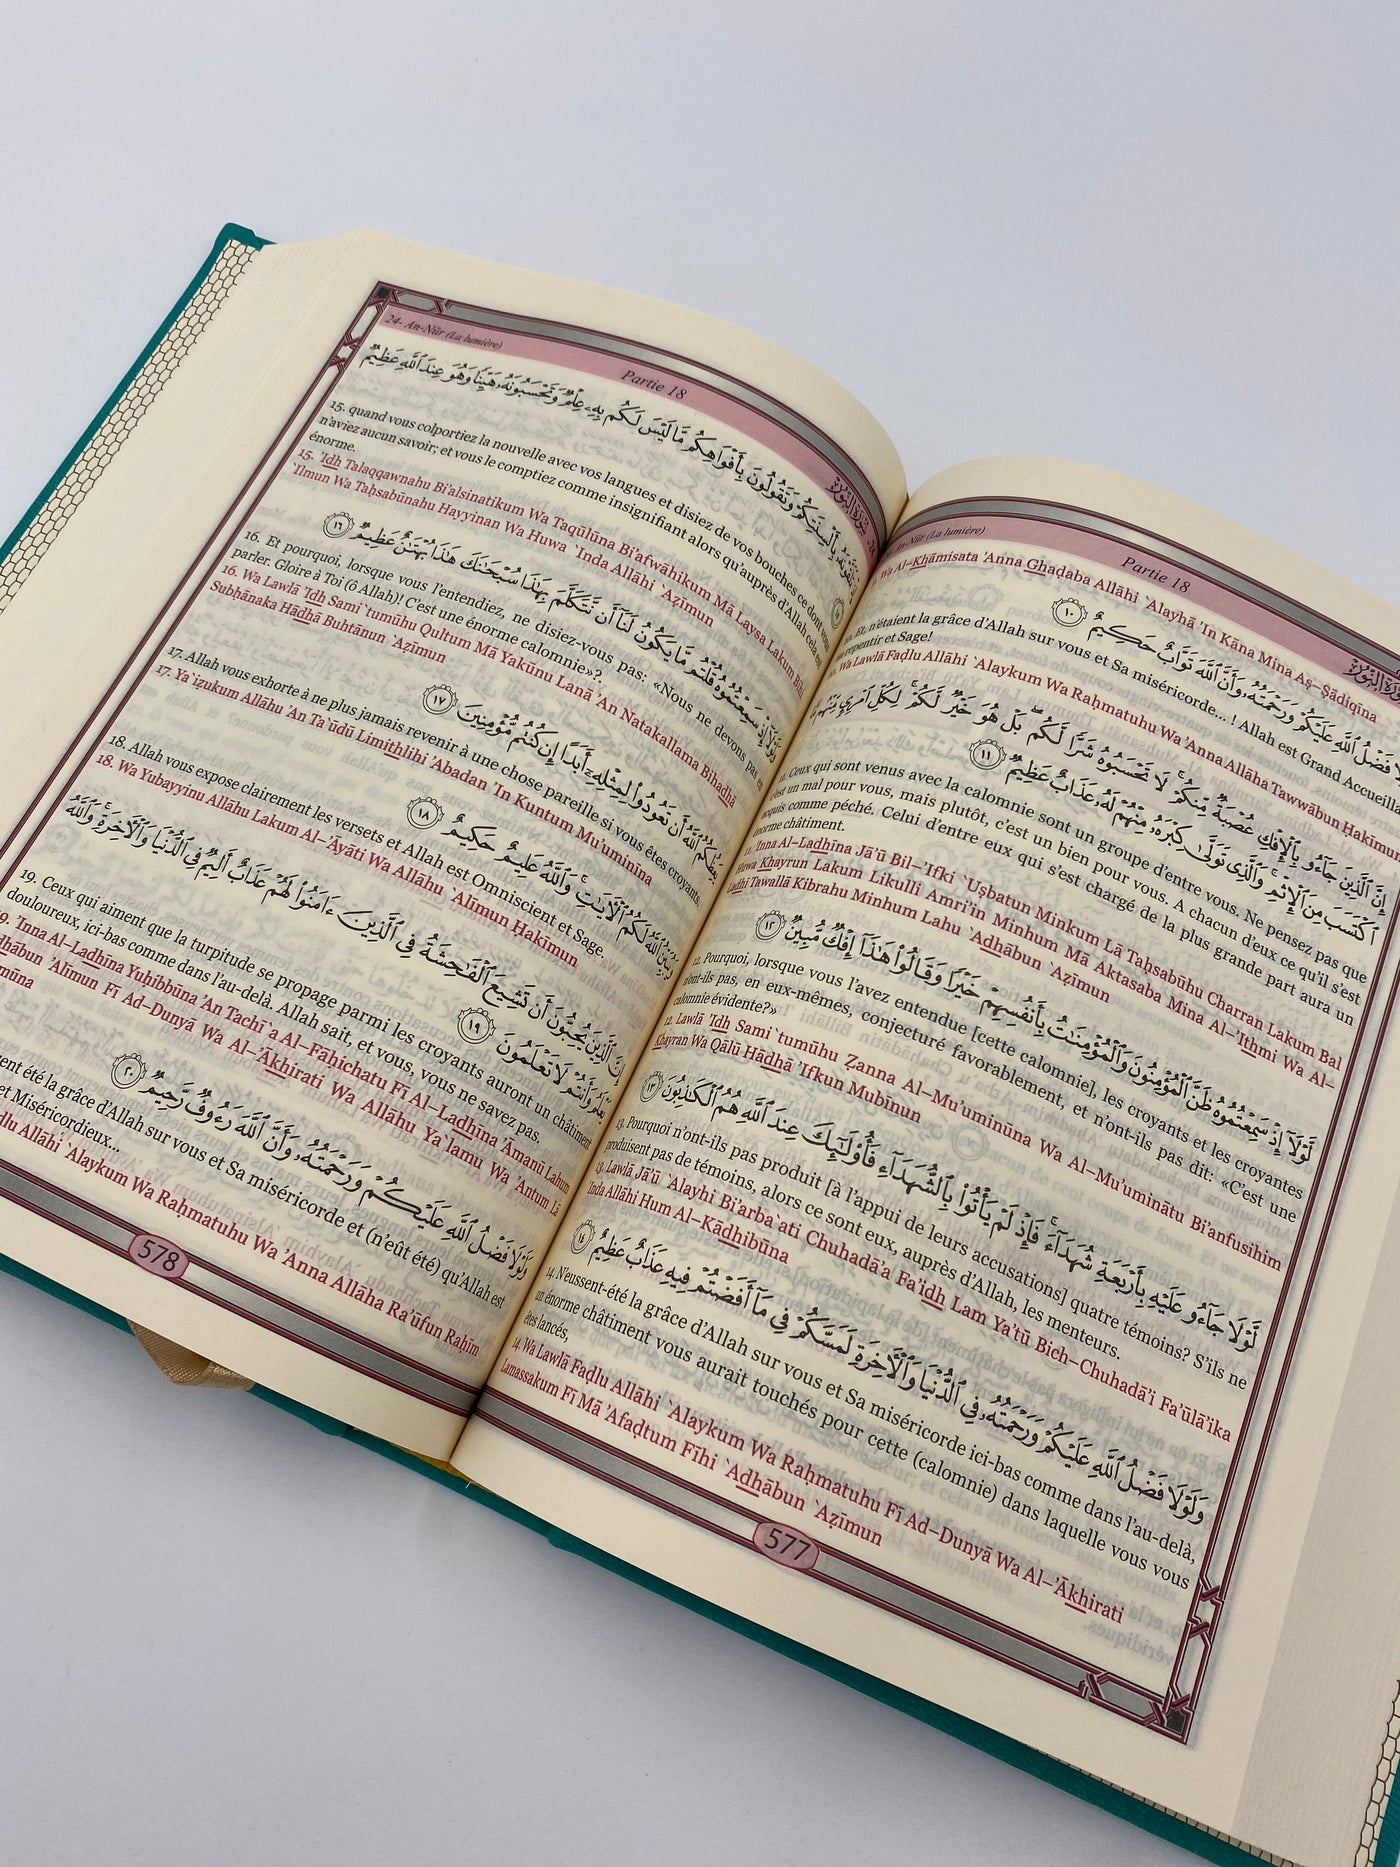 An-Nūr (La lumière)
Partie 18
Wa Al–Khāmisata 'Anna Ghaḍaba Allāhi `Alayhā 'In Kāna Mina Aṣ–Ṣādiqīna
فَضْلُ ٱللَّهِ عَلَيْكُمْ وَرَحْمَتُهُۥ وَأَنَّ ٱللَّهَ تَوَّابٌ حَكِيمٌ ١٠
n'étaient la grâce d'Allah sur vous et Sa miséricorde... ! Allah est Grand
repentir et Sage!
Wa Lawlā Faḍlu Allāhi `Alaykum Wa Raḥmatuhu Wa 'Anna Allāha Tawwābun Ḥakīmun
إِنَّ ٱلَّذِينَ جَآءُو بِٱلْإِفْكِ عُصْبَةٌ مِّنكُمْ ۚ لَا تَحْسَبُوهُ شَرًّا لَّكُم ۖ بَلْ هُوَ خَيْرٌ لَّكُمْ ۚ لِكُلِّ ٱمْرِئٍ مِّنْهُم مَّا
ٱكْتَسَبَ مِنَ ٱلْإِثْمِ ۚ وَٱلَّذِى تَوَلَّىٰ كِبْرَهُۥ مِنْهُمْ لَهُۥ عَذَابٌ عَظِيمٌ ١١
Ceux qui sont venus avec la calomnie sont un groupe d'entre vous. Ne pensez pas que
c'est un mal pour vous, mais plutôt, c'est un bien pour vous. A chacun d'eux ce qu'il s'est
acquis comme péché. Celui d'entre eux qui s'est chargé de la plus grande part aura un
énorme châtiment.
'Inna Al–Ladhīna Jā'ū Bil–'Ifki `Uṣbatun Minkum Lā Taḥsabūhu Charran Lakum Bal
Huwa Khayrun Lakum Likulli Amri'in Minhum Mā Aktasaba Mina Al–'Ithmi Wa Al–
Ladhī Tawallá Kibrahu Minhum Lahu `Adhābun `Aẓīmun
لَّوْلَآ إِذْ سَمِعْتُمُوهُ ظَنَّ ٱلْمُؤْمِنُونَ وَٱلْمُؤْمِنَٰتُ بِأَنفُسِهِمْ خَيْرًا وَقَالُوا۟ هَٰذَآ إِفْكٌ مُّبِينٌ ١٢
12. Pourquoi, lorsque vous l'avez entendue [cette calomnie], les croyants et les croyantes
n'ont-ils pas, en eux-mêmes, conjecturé favorablement, et n'ont-ils pas dit: «C'est une
calomnie évidente?»
12. Lawlā 'Idh Sami`tumūhu Ẓanna Al–Mu'uminūna Wa Al–Mu'uminātu Bi'anfusihim
Khayran Wa Qālū Hādhā 'Ifkun Mubīnun
لَّوْلَا جَآءُو عَلَيْهِ بِأَرْبَعَةِ شُهَدَآءَ ۚ فَإِذْ لَمْ يَأْتُوا۟ بِٱلشُّهَدَآءِ فَأُو۟لَٰٓئِكَ عِندَ ٱللَّهِ هُمُ ٱلْكَٰذِبُونَ ١٣
13. Pourquoi n'ont-ils pas produit [à l'appui de leurs accusations] quatre témoins? S'ils ne
produisent pas de témoins, alors ce sont eux, auprès d'Allah, les menteurs.
13. Lawlā Jā'ū `Alayhi Bi'arba`ati Chuhadā'a Fa'idh Lam Ya'tū Bich–Chuhadā'i Fa'ūlā'ika
`Inda Allāhi Hum Al–Kādhibūna
وَلَوْلَا فَضْلُ ٱللَّهِ عَلَيْكُمْ وَرَحْمَتُهُۥ فِى ٱلدُّنْيَا وَٱلْءَاخِرَةِ لَمَسَّكُمْ فِى مَآ أَفَضْتُمْ فِيهِ عَذَابٌ عَظِيمٌ ١٤
14. N'eussent-été la grâce d'Allah sur vous et Sa miséricorde ici-bas comme dans l'au-delà,
un énorme châtiment vous aurait touchés pour cette (calomnie) dans laquelle vous vous
êtes lancés,
14. Wa Lawlā Faḍlu Allāhi `Alaykum Wa Raḥmatuhu Fī Ad–Dunyā Wa Al–'Ākhirati
Lamassakum Fī Mā 'Afaḍtum Fīhi `Adhābun `Aẓīmun
577
24- An-Nūr (La lumière)
Partie 18
سُورَةُ النُّورِ
تَلَقَّوْنَهُۥ بِأَلْسِنَتِكُمْ وَتَقُولُونَ بِأَفْوَاهِكُم مَّا لَيْسَ لَكُم بِهِۦ عِلْمٌ وَتَحْسَبُونَهُۥ هَيِّنًا وَهُوَ عِندَ ٱللَّهِ عَظِيمٌ
١٥
15. quand vous colportiez la nouvelle avec vos langues et disiez de vos bouches ce dont vous
n'aviez aucun savoir; et vous le comptiez comme insignifiant alors qu'auprès d'Allah cela est
énorme.
15. 'Idh Talaqqawnahu Bi'alsinatikum Wa Taqūlūna Bi'afwāhikum Mā Laysa Lakum Bihi
`Ilmun Wa Taḥsabūnahu Hayyinan Wa Huwa `Inda Allāhi `Aẓīmun
وَلَوْلَآ إِذْ سَمِعْتُمُوهُ قُلْتُم مَّا يَكُونُ لَنَآ أَن نَّتَكَلَّمَ بِهَٰذَا سُبْحَٰنَكَ هَٰذَا بُهْتَٰنٌ عَظِيمٌ ١٦
16. Et pourquoi, lorsque vous l'entendiez, ne disiez-vous pas: «Nous ne devons pas en
parler. Gloire à Toi (ô Allah)! C'est une énorme calomnie»?.
16. Wa Lawlā 'Idh Sami`tumūhu Qultum Mā Yakūnu Lanā 'An Natakallama Bihadhā
Subḥānaka Hādhā Buhtānun `Aẓīmun
يَعِظُكُمُ ٱللَّهُ أَن تَعُودُوا۟ لِمِثْلِهِۦٓ أَبَدًا إِن كُنتُم مُّؤْمِنِينَ ١٧
17. Allah vous exhorte à ne plus jamais revenir à une chose pareille si vous êtes croyants.
17. Ya`iẓukum Allāhu 'An Ta`ūdū Limithlihi 'Abadan 'In Kuntum Mu'uminīna
وَيُبَيِّنُ ٱللَّهُ لَكُمُ ٱلْءَايَٰتِ ۚ وَٱللَّهُ عَلِيمٌ حَكِيمٌ ١٨
18. Allah vous expose clairement les versets et Allah est Omniscient et Sage.
18. Wa Yubayyinu Allāhu Lakum Al–'Āyāti Wa Allāhu `Alīmun Ḥakīmun
إِنَّ ٱلَّذِينَ يُحِبُّونَ أَن تَشِيعَ ٱلْفَٰحِشَةُ فِى ٱلَّذِينَ ءَامَنُوا۟ لَهُمْ عَذَابٌ أَلِيمٌ فِى ٱلدُّنْيَا وَٱلْءَاخِرَةِ ۚ وَٱللَّهُ
يَعْلَمُ وَأَنتُمْ لَا تَعْلَمُونَ ١٩
19. Ceux qui aiment que la turpitude se propage parmi les croyants auront un châtiment
douloureux, ici-bas comme dans l'au-delà. Allah sait, et vous, vous ne savez pas.
19. 'Inna Al–Ladhīna Yuḥibbūna 'An Tachī`a Al–Fāḥichatu Fī Al–Ladhīna 'Āmanū Lahum
`Adhābun 'Alīmun Fī Ad–Dunyā Wa Al–'Ākhirati Wa Allāhu Ya`lamu Wa 'Antum Lā
وَلَوْلَا فَضْلُ ٱللَّهِ عَلَيْكُمْ وَرَحْمَتُهُۥ وَأَنَّ ٱللَّهَ رَءُوفٌ رَّحِيمٌ ٢٠
été la grâce d'Allah sur vous et Sa miséricorde et (n'eût été) qu'Allah est
et Miséricordieux...
Allāhi `Alaykum Wa Raḥmatuhu Wa 'Anna Allāha Ra'ūfun Raḥīm
578